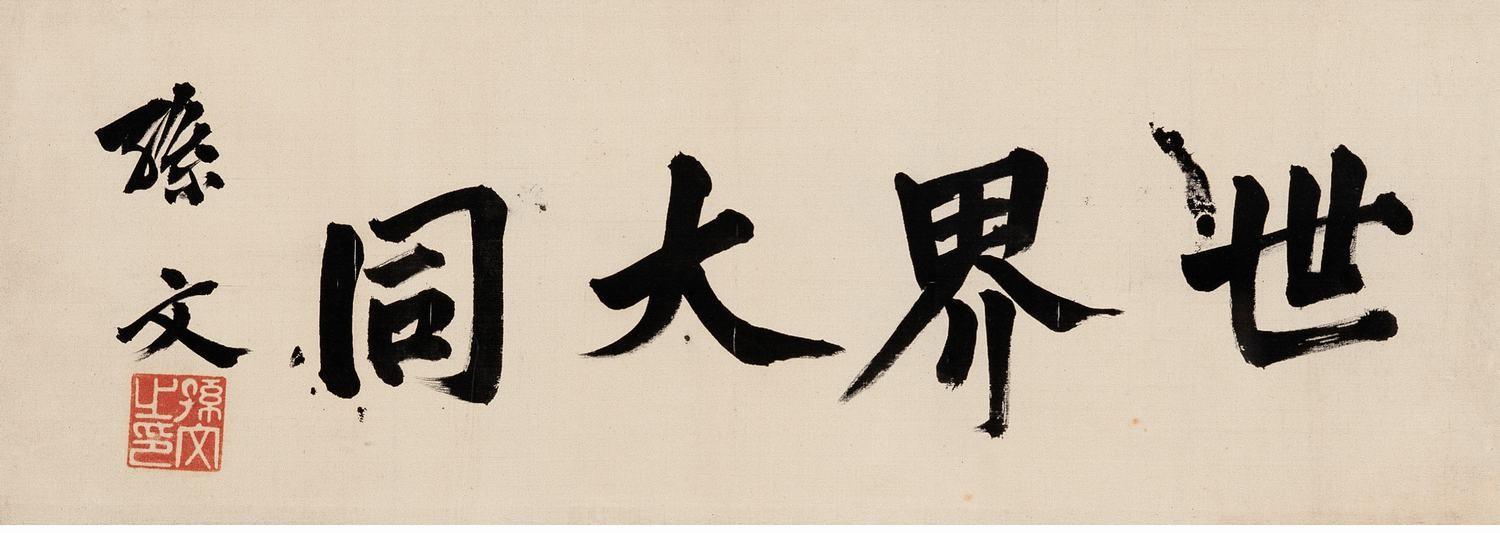 世界大同
孫文
孫文之印